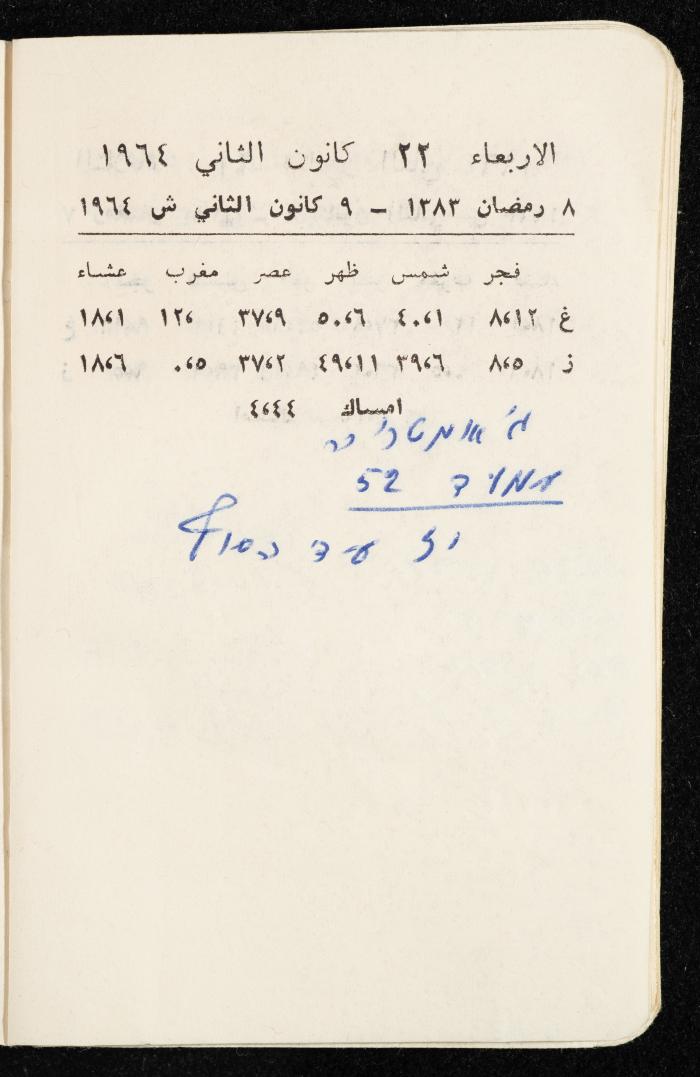 الاربعاء ٢٢ كانون الثاني ١٩٦٤
٨ رمضان ١٣٨٣ – ٩ كانون الثاني ش ١٩٦٤
فجر شمس ظهر عصر مغرب عشاء
غ ٨،١٢ ٤٠،١ ٥٠،٦ ٣٧،٩ ١٢، ١٨،١
ز ٨،٥ ٣٩،٦ ٤٩،١١ ٣٧،٢ ٠،٥ ١٨،٦
امساك ٤،٤٤
ג'אומטריה
עמוד 52
עד הסוף